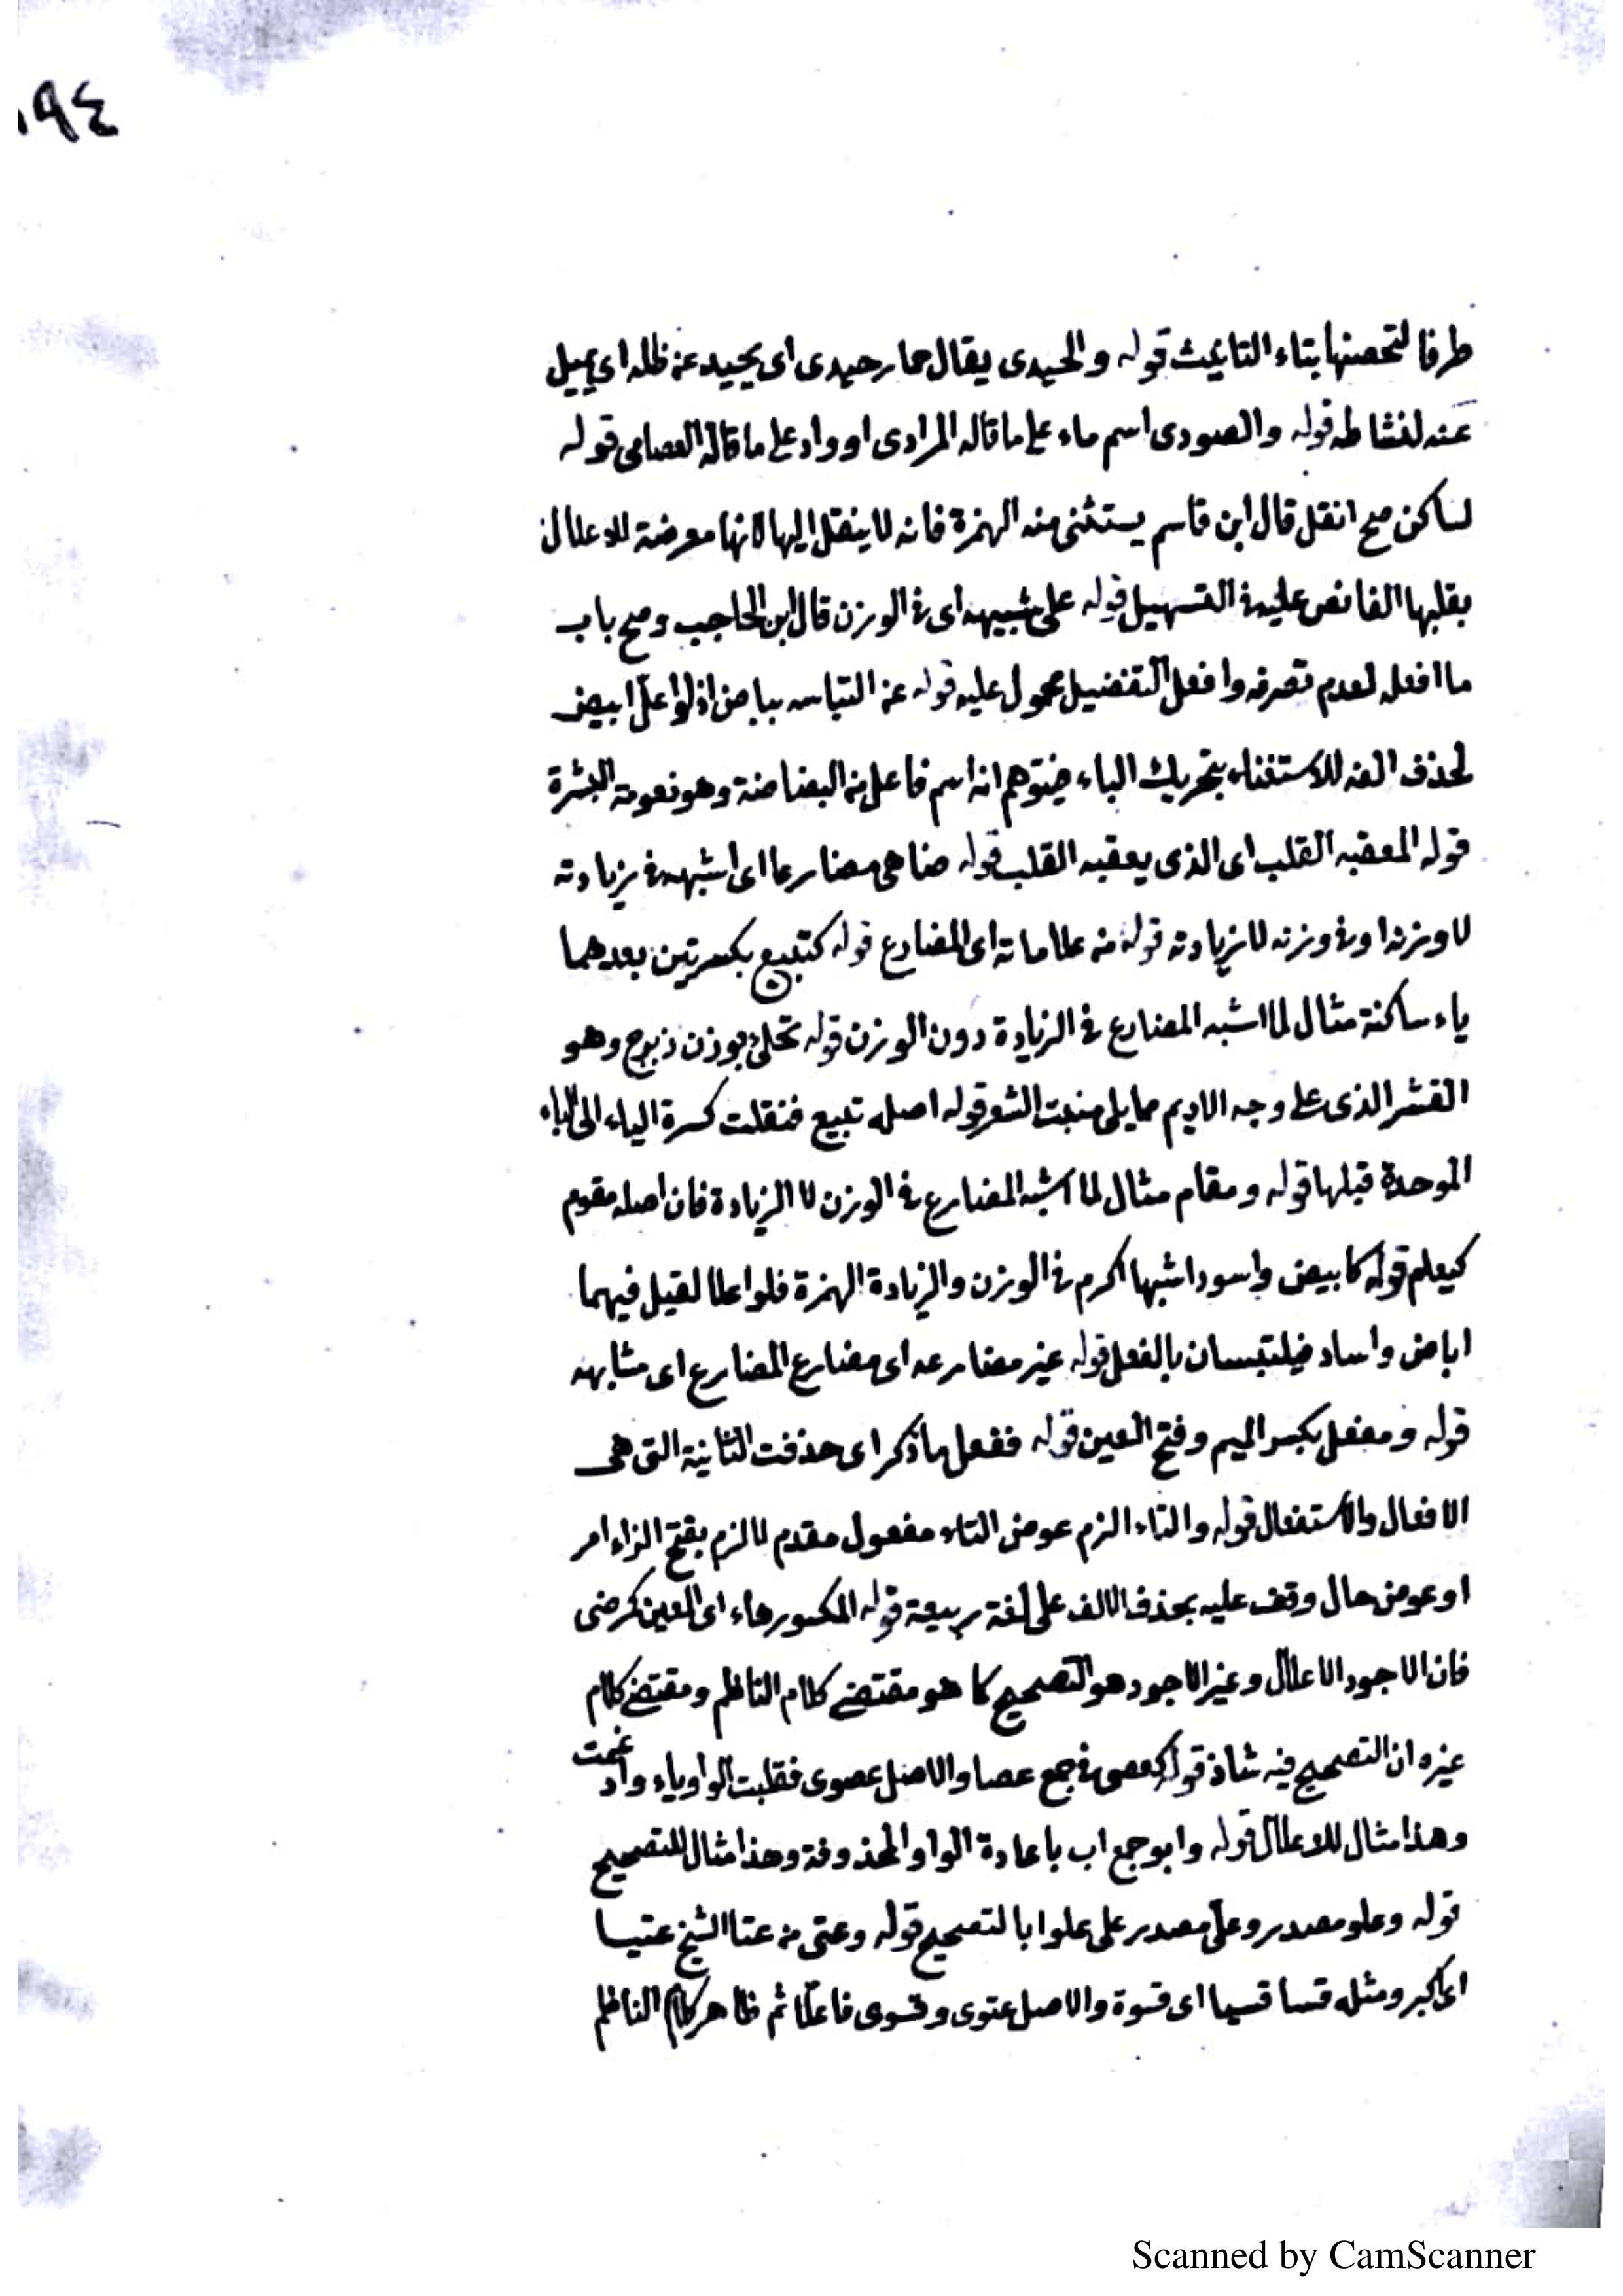 ١٩٤
طرفا لتحصنها بتاء التانيث قوله والحيدى يقال حمار حيدى اى يحيد عن ظله اى يميل
عنه لنشاطه قوله والصورى اسم ماء على ما قاله المرادى او واد على ما قاله العصامى قوله
لساكن صح انقل قال ابن قاسم يستثنى منه الهمزة فانه لا ينقل اليها لانها معرضة للاعلال
بقلبها الفا نص عليه فى التسهيل قوله على شبيهه اى فى الوزن قال ابن الحاجب وصح باب
ما افعله لعدم تصرفه وافعل التفضيل محمول عليه قوله عن التباسه بباض اذ لو اعل ابيض
لحذف الفه للاستغناء بتحريك الباء فيتوهم انه اسم فاعل من البضاضة وهو نعومة البشرة
قوله المعقبه القلب اى الذى يعقبه القلب قوله ضاهى مضارعا اى اشبهه فى زيادته
لا وزنه او فى وزنه لا زيادته قوله من علاماته اى المضارع قوله كتبيع بكسرتين بعدهما
ياء ساكنة مثال لما اشبه المضارع فى الزيادة دون الوزن قوله تحلئ بوزن زبرج وهو
القشر الذى على وجه الاديم مما يلى منبت الشعر قوله اصله تبيع فنقلت كسرة الياء الى الباء
الموحدة قبلها قوله ومقام مثال لما اشبه المضارع فى الوزن لا الزيادة فان اصله مقوم
كيعلم قوله كابيض واسود اشبها اكرم فى الوزن والزيادة الهمزة فلو اعلا لقيل فيهما
اباض واساد فيلتبسان بالفعل قوله غير مضارعه اى مضارع المضارع اى مشابهه
قوله ومفعل بكسر الميم وفتح العين قوله ففعل ما ذكر اى حذفت الثانية التى هى
الافعال والاستفعال قوله والتاء الزم عوض التاء مفعول مقدم لالزم بفتح الزاء امر
او عوض حال وقف عليه بحذف الالف على لغة ربيعة قوله المكسورهاء اى العين كرضى
فان الاجود الاعلال وغير الاجود هو التصحيح كما هو مقتضى كلام الناظم ومقتضى كلام
غيره ان التصحيح فيه شاذ قوله كعصى فى جمع عصا والاصل عصوى فقلبت الواو ياء وادغمت
وهذا مثال للاعلال قوله وابو جمع اب باعادة الواو المحذوفة وهذا مثال للتصحيح
قوله وعلو مصدر وعلى مصدر على علوا بالتصحيح قوله وعتى من عتا الشيخ عتيا
اى كبر ومثله قسا قسيا اى قسوة والاصل عتوى وقسوى فاعلا ثم ظاهر كلام الناظم
Scanned by CamScanner